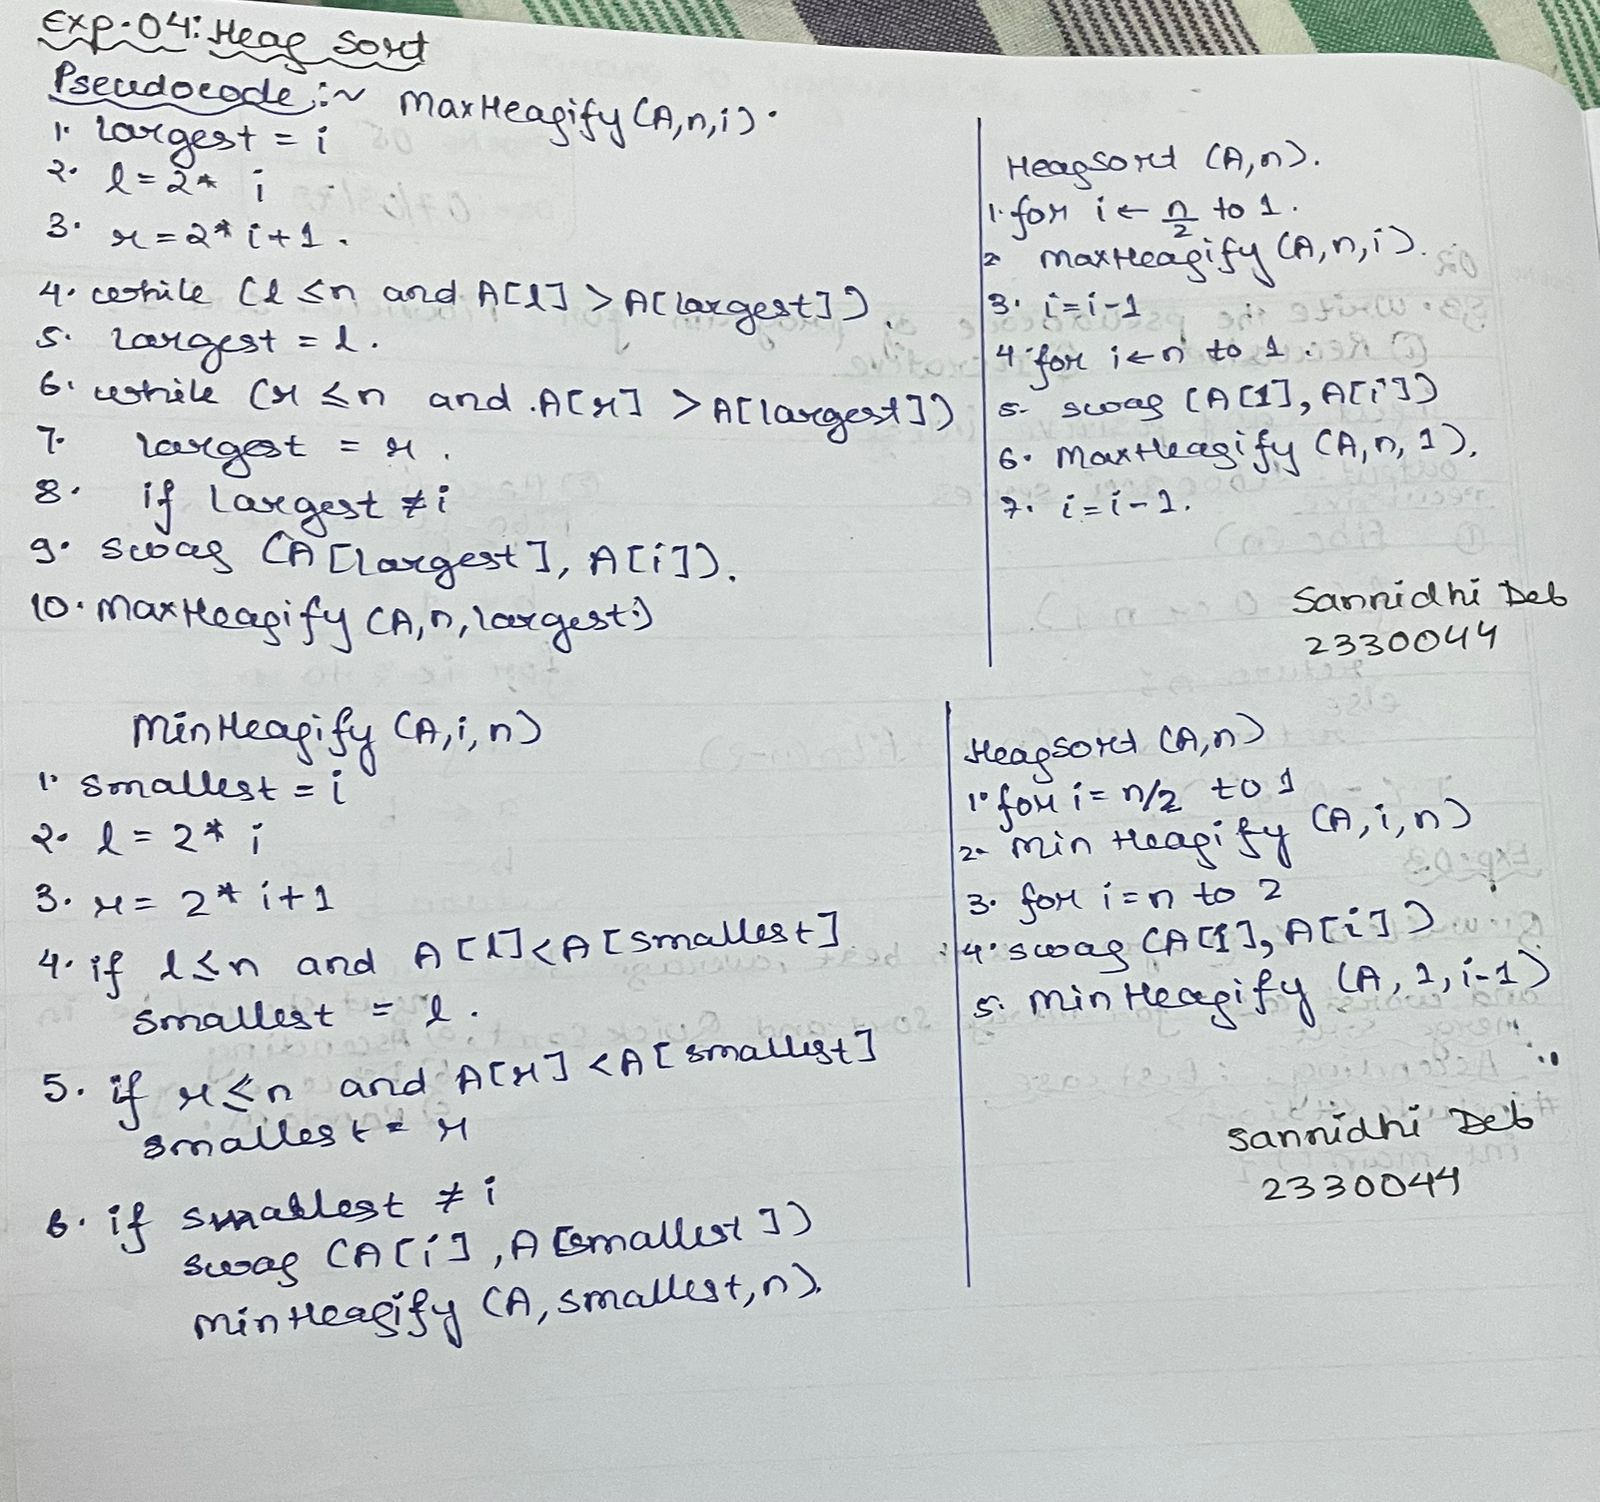 Exp-04: Heap Sort
Pseudocode :~ MaxHeapify (A,n,i).
1. largest = i
2. l = 2* i
3. r = 2* i+1.
4. while (l ≤n and A[l] >A[largest]).
5. largest = l.
6. while (r ≤n and A[r] >A[largest])
7. largest = r.
8. if largest ≠i
9. swap (A[largest], A[i]).
10. MaxHeapify (A, n, largest)
HeapSort (A,n).
1. for i ← n/2 to 1.
2 maxHeapify (A, n, i).
3. i = i-1
4. for i←n to 1.
5. swap (A[1], A[i])
6. MaxHeapify (A, n, 1).
7. i = i-1.
Sannidhi Deb
2330044
MinHeapify (A, i, n)
1. smallest = i
2. l = 2* i
3. r = 2* i+1
4. if l≤n and A[l]<A[smallest]
smallest = l.
5. if r≤n and A[r] <A[smallest]
smallest = r
6. if smallest ≠ i
swap (A[i], A[smallest])
minHeapify (A, smallest, n).
HeapSort (A,n)
1. for i= n/2 to 1
2. min Heapify (A, i, n)
3. for i=n to 2
4. swap (A[1], A[i])
5. min Heapify (A, 1, i-1)
Sannidhi Deb
2330044